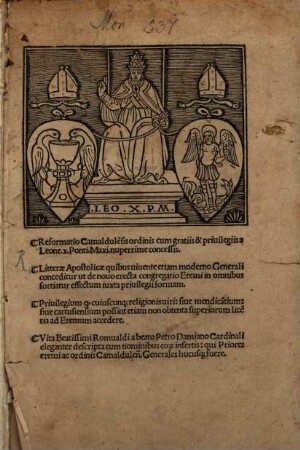 Mon 539
LEO . X . P. M
❡ Reformatio Camaldulẽsis ordinis cum gratiis & priuilegiis a
Leone .x. Ponti. Maxi. nuperrime concessis.
❡ Litteræ Apostolicæ quibus uiuente etiam moderno Generali
conceditur ut de nouo erecta congregatio Eremi in omnibus
sortiatur effectum iuxta priuilegii formam.
❡ Priuilegium ꝙ cuiuscunꝗ religionis uiri: siue mendicãtium:
siue cartusiensium possint etiam non obtenta superiorum licẽ
tia ad Eremum accedere.
❡ Vita Beatissimi Romualdi a beato Petro Damiano Cardinali
eleganter descripta cum nominibus eoꝝ insertis: qui Priores
eremi ac ordinis Camaldulen̄. Generales hucusꝗ fuere.